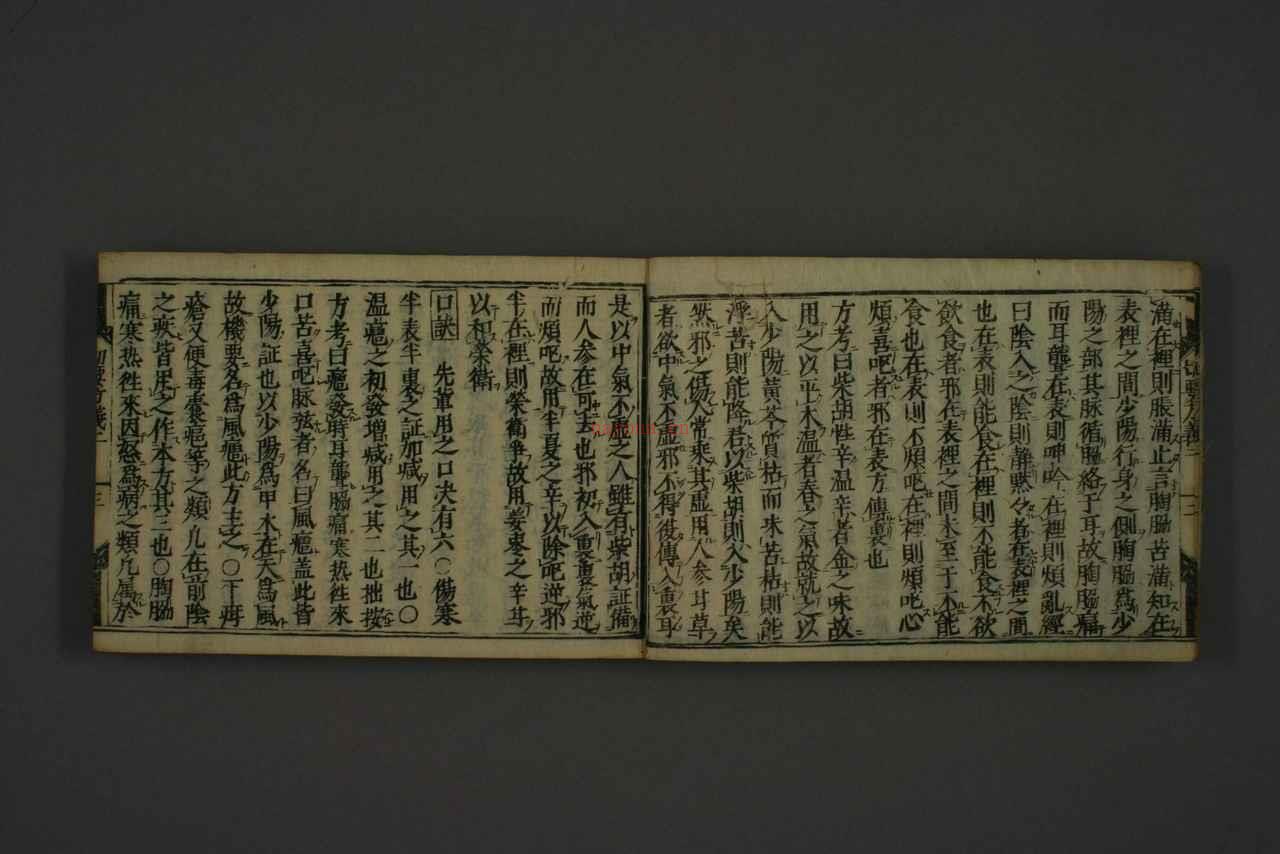 滿在裡則脹滿止言胸脇苦滿知在
表裡之間少陽行身之側胸脇爲少
陽之部其脉循脇絡于耳故胸脇痛
而耳聾在表則呻吟在裡則煩亂經
曰陰入之陰則靜黙々者在表裡之間
也在表則能食在裡則不能食不欲
飲食者邪在表裡之間未至于不能
食也在表則不煩呕在裡則煩呕心
煩喜呕者邪在表方傳裏也
方考曰柴胡性辛温辛者金之味故
用之以平木温者春之氣故就之以
入少陽黃芩質枯而味苦枯則能
浮苦則能降君以柴胡則入少陽矣
然邪之傷人常乘其虚用人參甘草
者欲中氣不虚邪不得復傳入裏耳
是以中氣不虚之人雖有柴胡証備
而人參在可去也邪初入裏裏氣逆
而煩呕故用半夏之辛以除呕逆邪
半在裡則榮衛爭故用姜枣之辛甘
以和榮衛
口訣 先軰用之口决有六〇傷寒
半表半裏之証加咸用之其一也〇
温瘧之初發増咸用之其二也拙按
方考曰瘧發時耳聾脇痛寒热徃來
口苦喜呕脉弦者名曰風瘧盖此皆
少陽証也以少陽爲甲木在天爲風
故機要名爲風瘧此方主之〇下疳
瘡又便毒囊癰等之類凡在前陰
之疾皆用之作本方其三也〇胸脇
痛寒热徃來因怒爲病之類凡属於
三